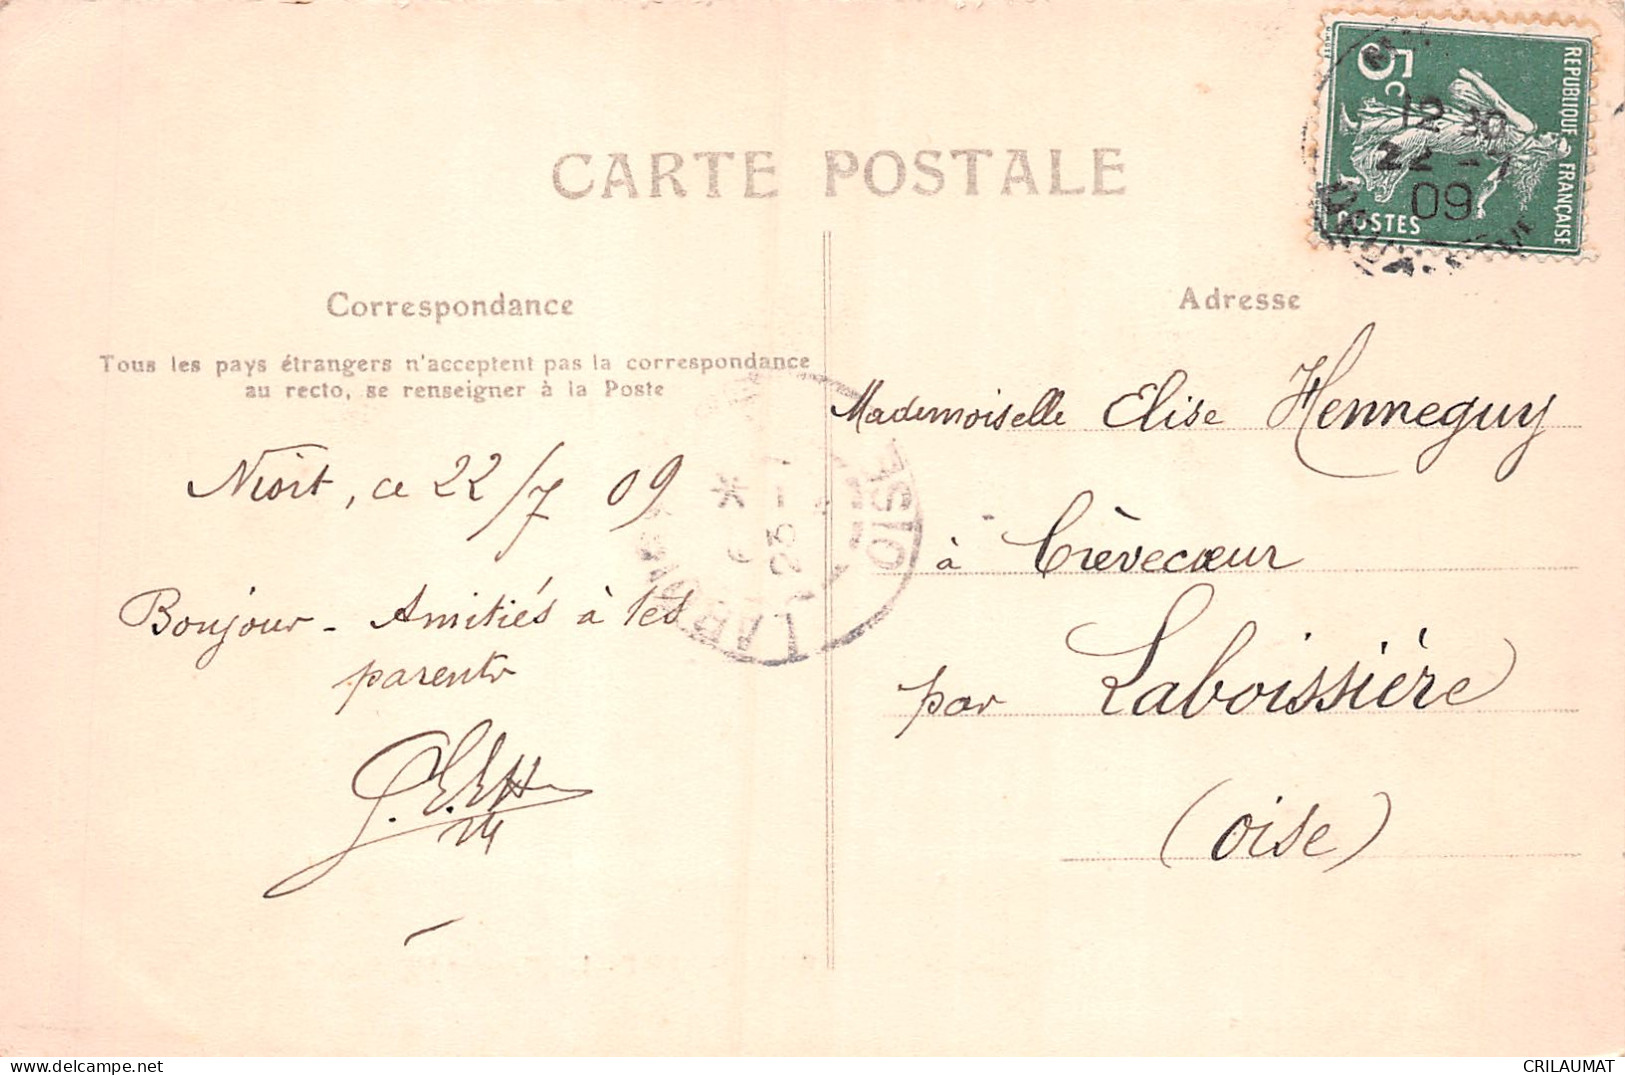 CARTE POSTALE
REPUBLIQUE FRANÇAISE
5c
POSTES
12 30
22 - 7
09
Correspondance
Tous les pays étrangers n'acceptent pas la correspondance
au recto, se renseigner à la Poste
Niort, ce 22/7 09
Bonjour - Amitiés à tes
parents
Adresse
Mademoiselle Elise Henneguy
à Crèvecœur
par Laboissière
(Oise)
OISE
23
CRILAUMAT